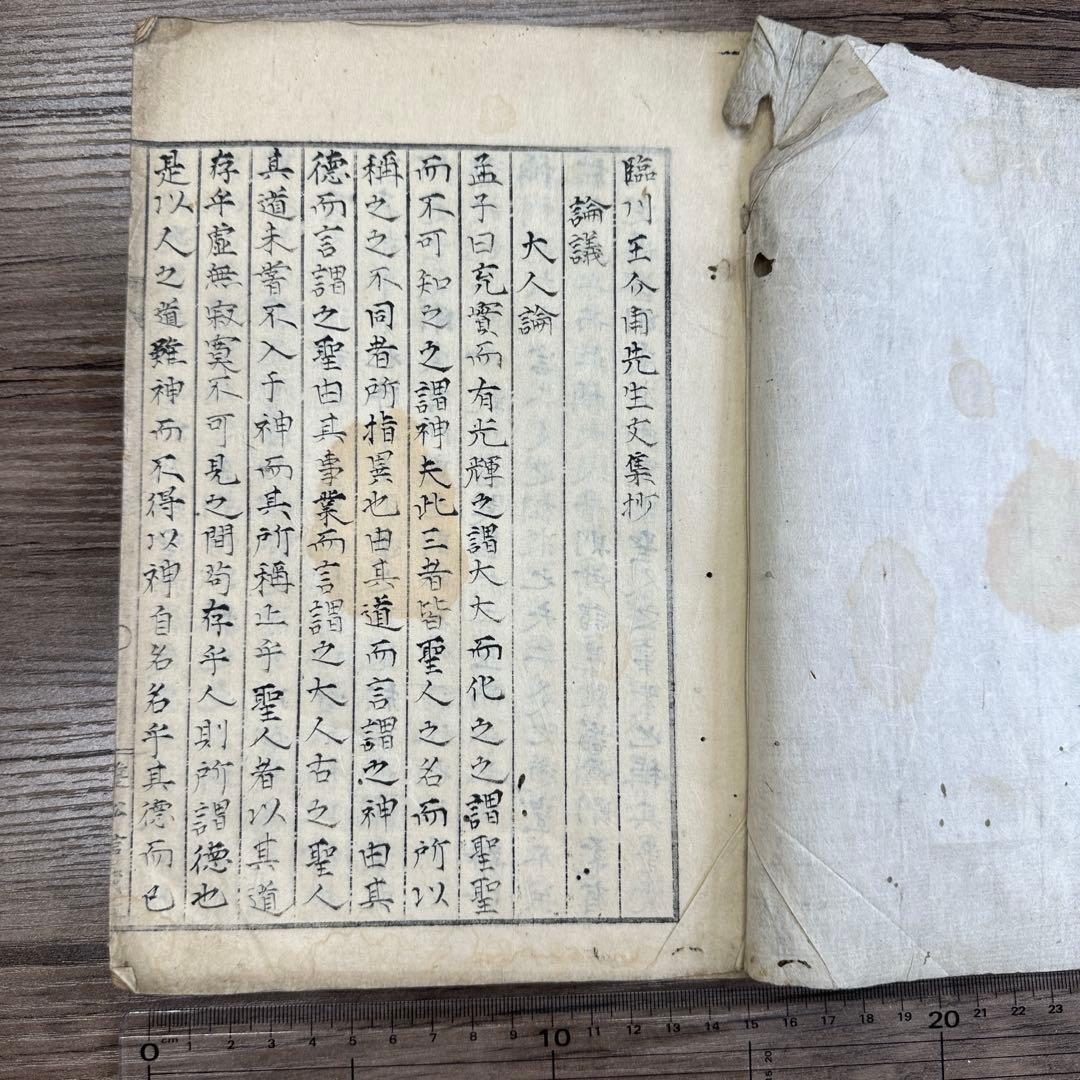 臨川王介甫先生文集抄
論議
大人論
孟子曰充實而有光輝之謂大大而化之之謂聖聖
而不可知之之謂神夫此三者皆聖人之名而所以
稱之之不同者所指異也由其道而言謂之神由其
德而言謂之聖由其事業而言謂之大人古之聖人
其道未嘗不入于神而其所稱止乎聖人者以其道
存乎虛無寂寞不可見之間苟存乎人則所謂德也
是以人之道雖神而不得以神自名名乎其德而已
0 cm 1 2 3 4 5 6 7 8 9 10 11 12 13 14 15 16 17 18 19 20 21 22 23